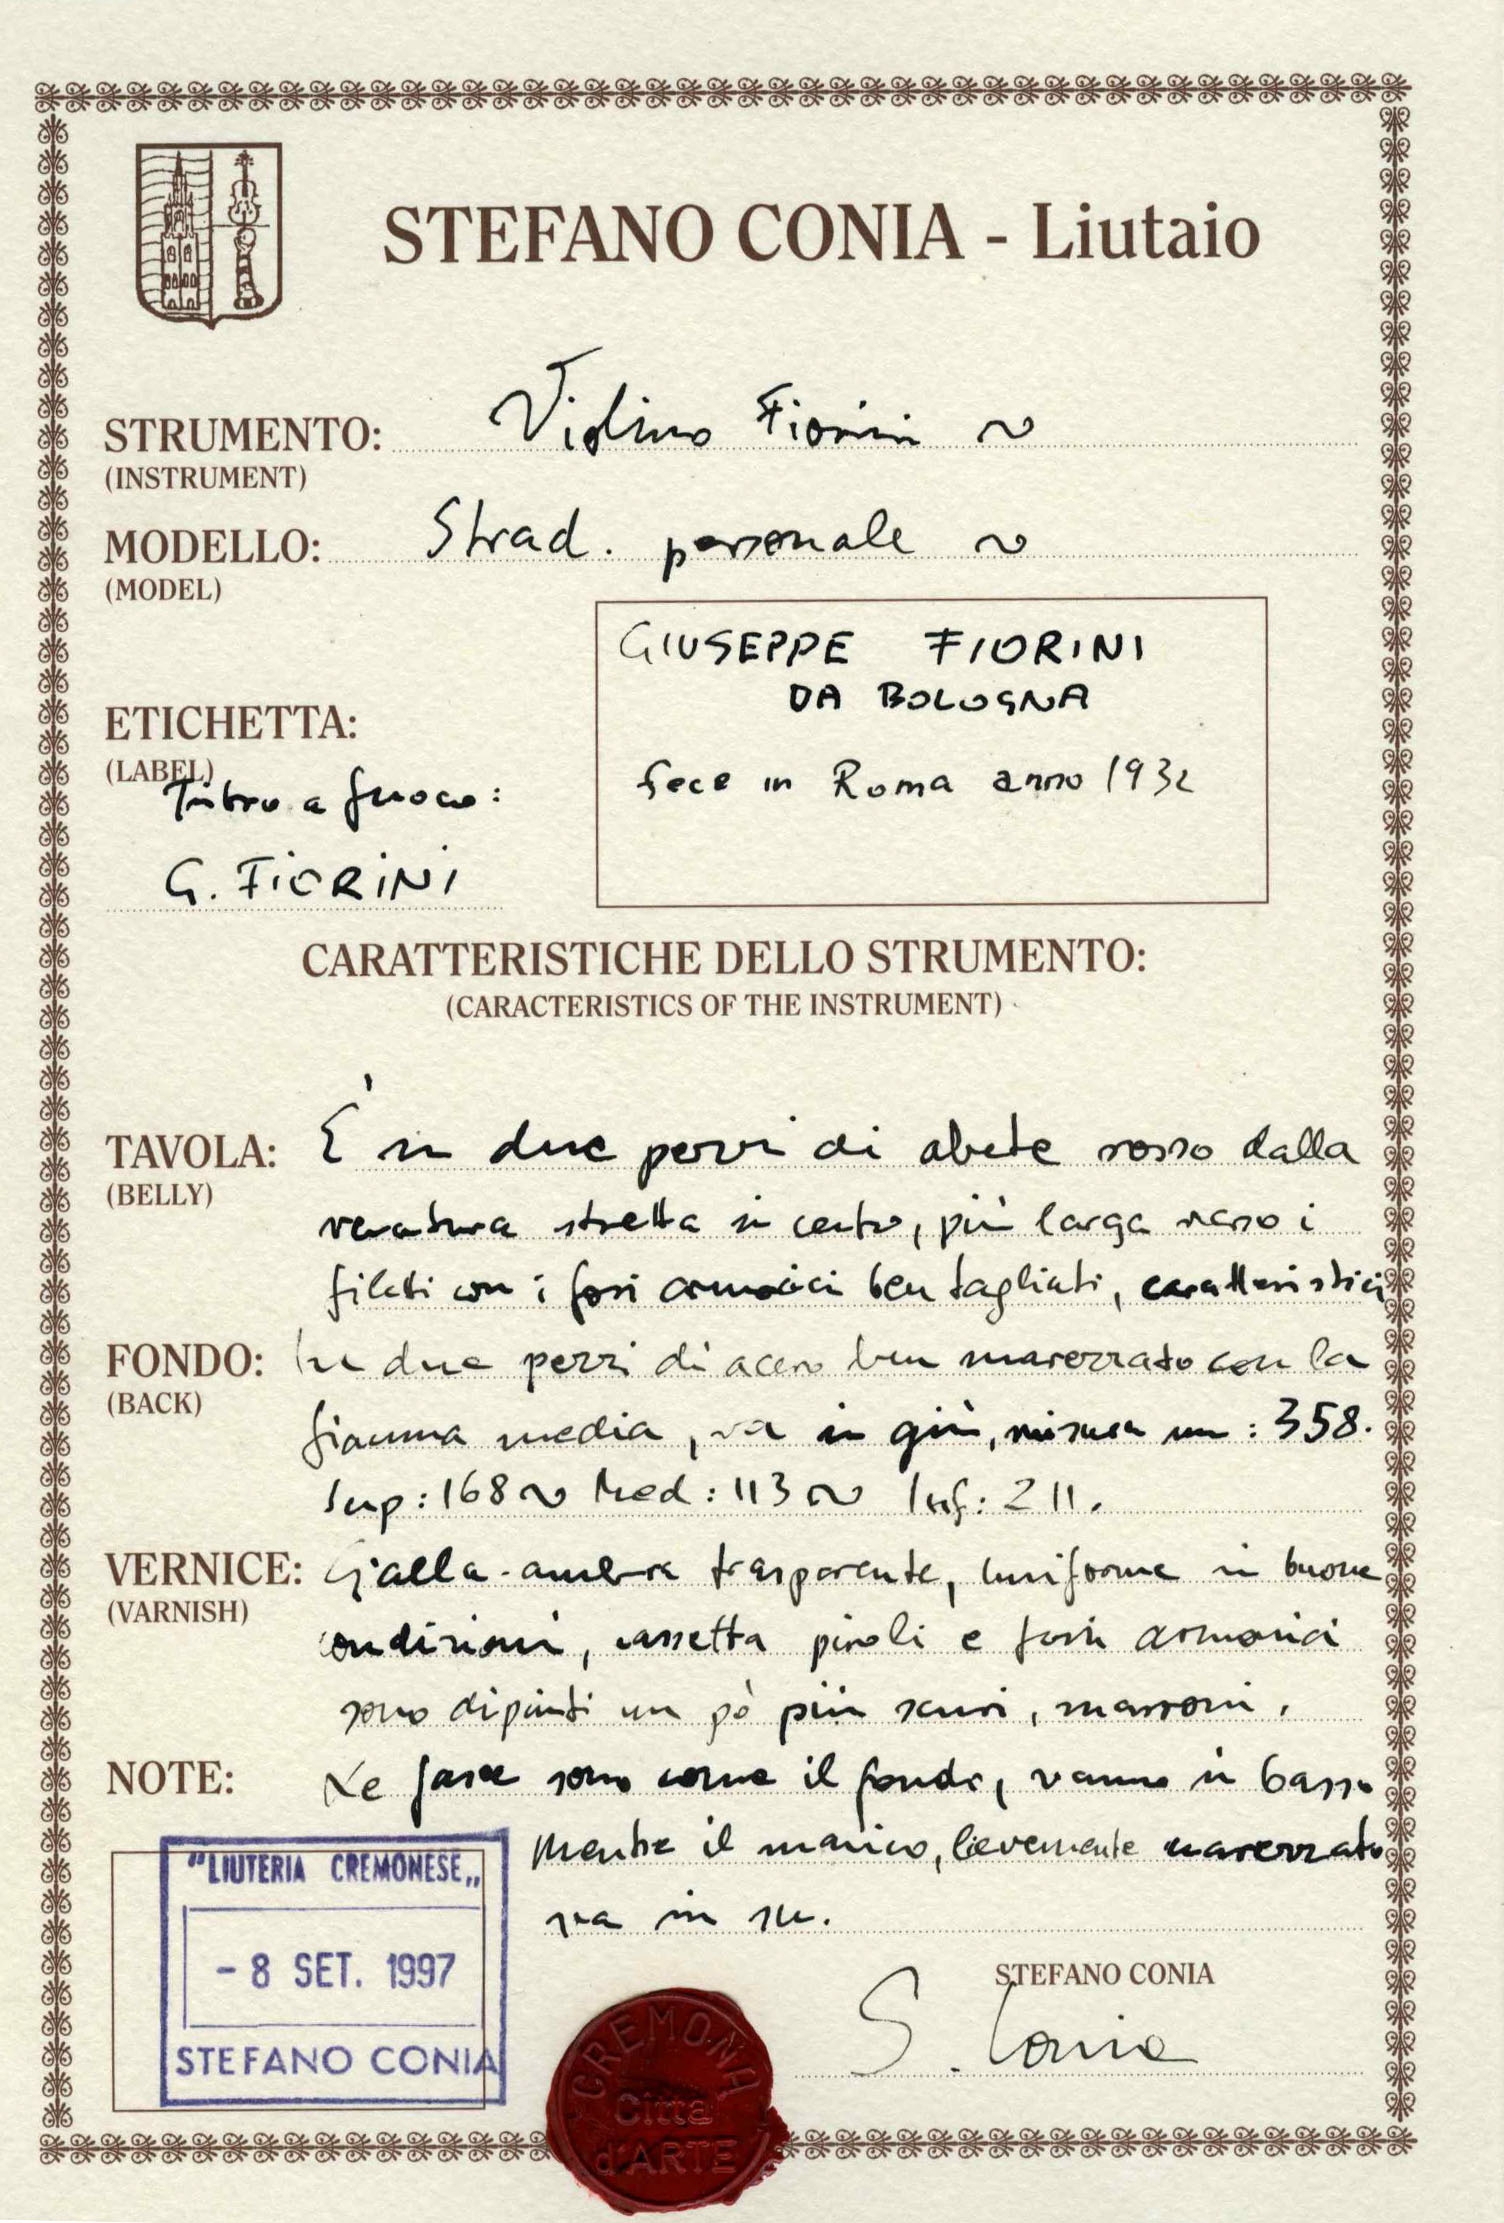 STEFANO CONIA - Liutaio
STRUMENTO: Violino Fiorini ~
(INSTRUMENT)
MODELLO: Strad. personale ~
(MODEL)
GIUSEPPE FIORINI
DA BOLOGNA
fece in Roma anno 1932
ETICHETTA:
(LABEL)
Timbro a fuoco:
G. FIORINI
CARATTERISTICHE DELLO STRUMENTO:
(CARACTERISTICS OF THE INSTRUMENT)
TAVOLA: È in due pezzi di abete rosso dalla
(BELLY)
venatura stretta in centro, più larga verso i
filetti con i fori armonici ben tagliati, caratteristici
FONDO: In due pezzi di acero ben marezzato con la
(BACK)
fiamma media, va in giù, misura mm: 358.
Sup: 168 ~ Med: 113 ~ Inf: 211.
VERNICE: Gialla-ambra trasparente, uniforme in buone
(VARNISH)
condizioni, cassetta piroli e fori armonici
sono dipinti un pò più scuri, marroni.
NOTE: Le fasce sono come il fondo, vanno in basso
mentre il manico, lievemente marezzato
va in su.
"LIUTERIA CREMONESE„
- 8 SET. 1997
STEFANO CONIA
STEFANO CONIA
S. Conia
CREMONA
Città
d'ARTE